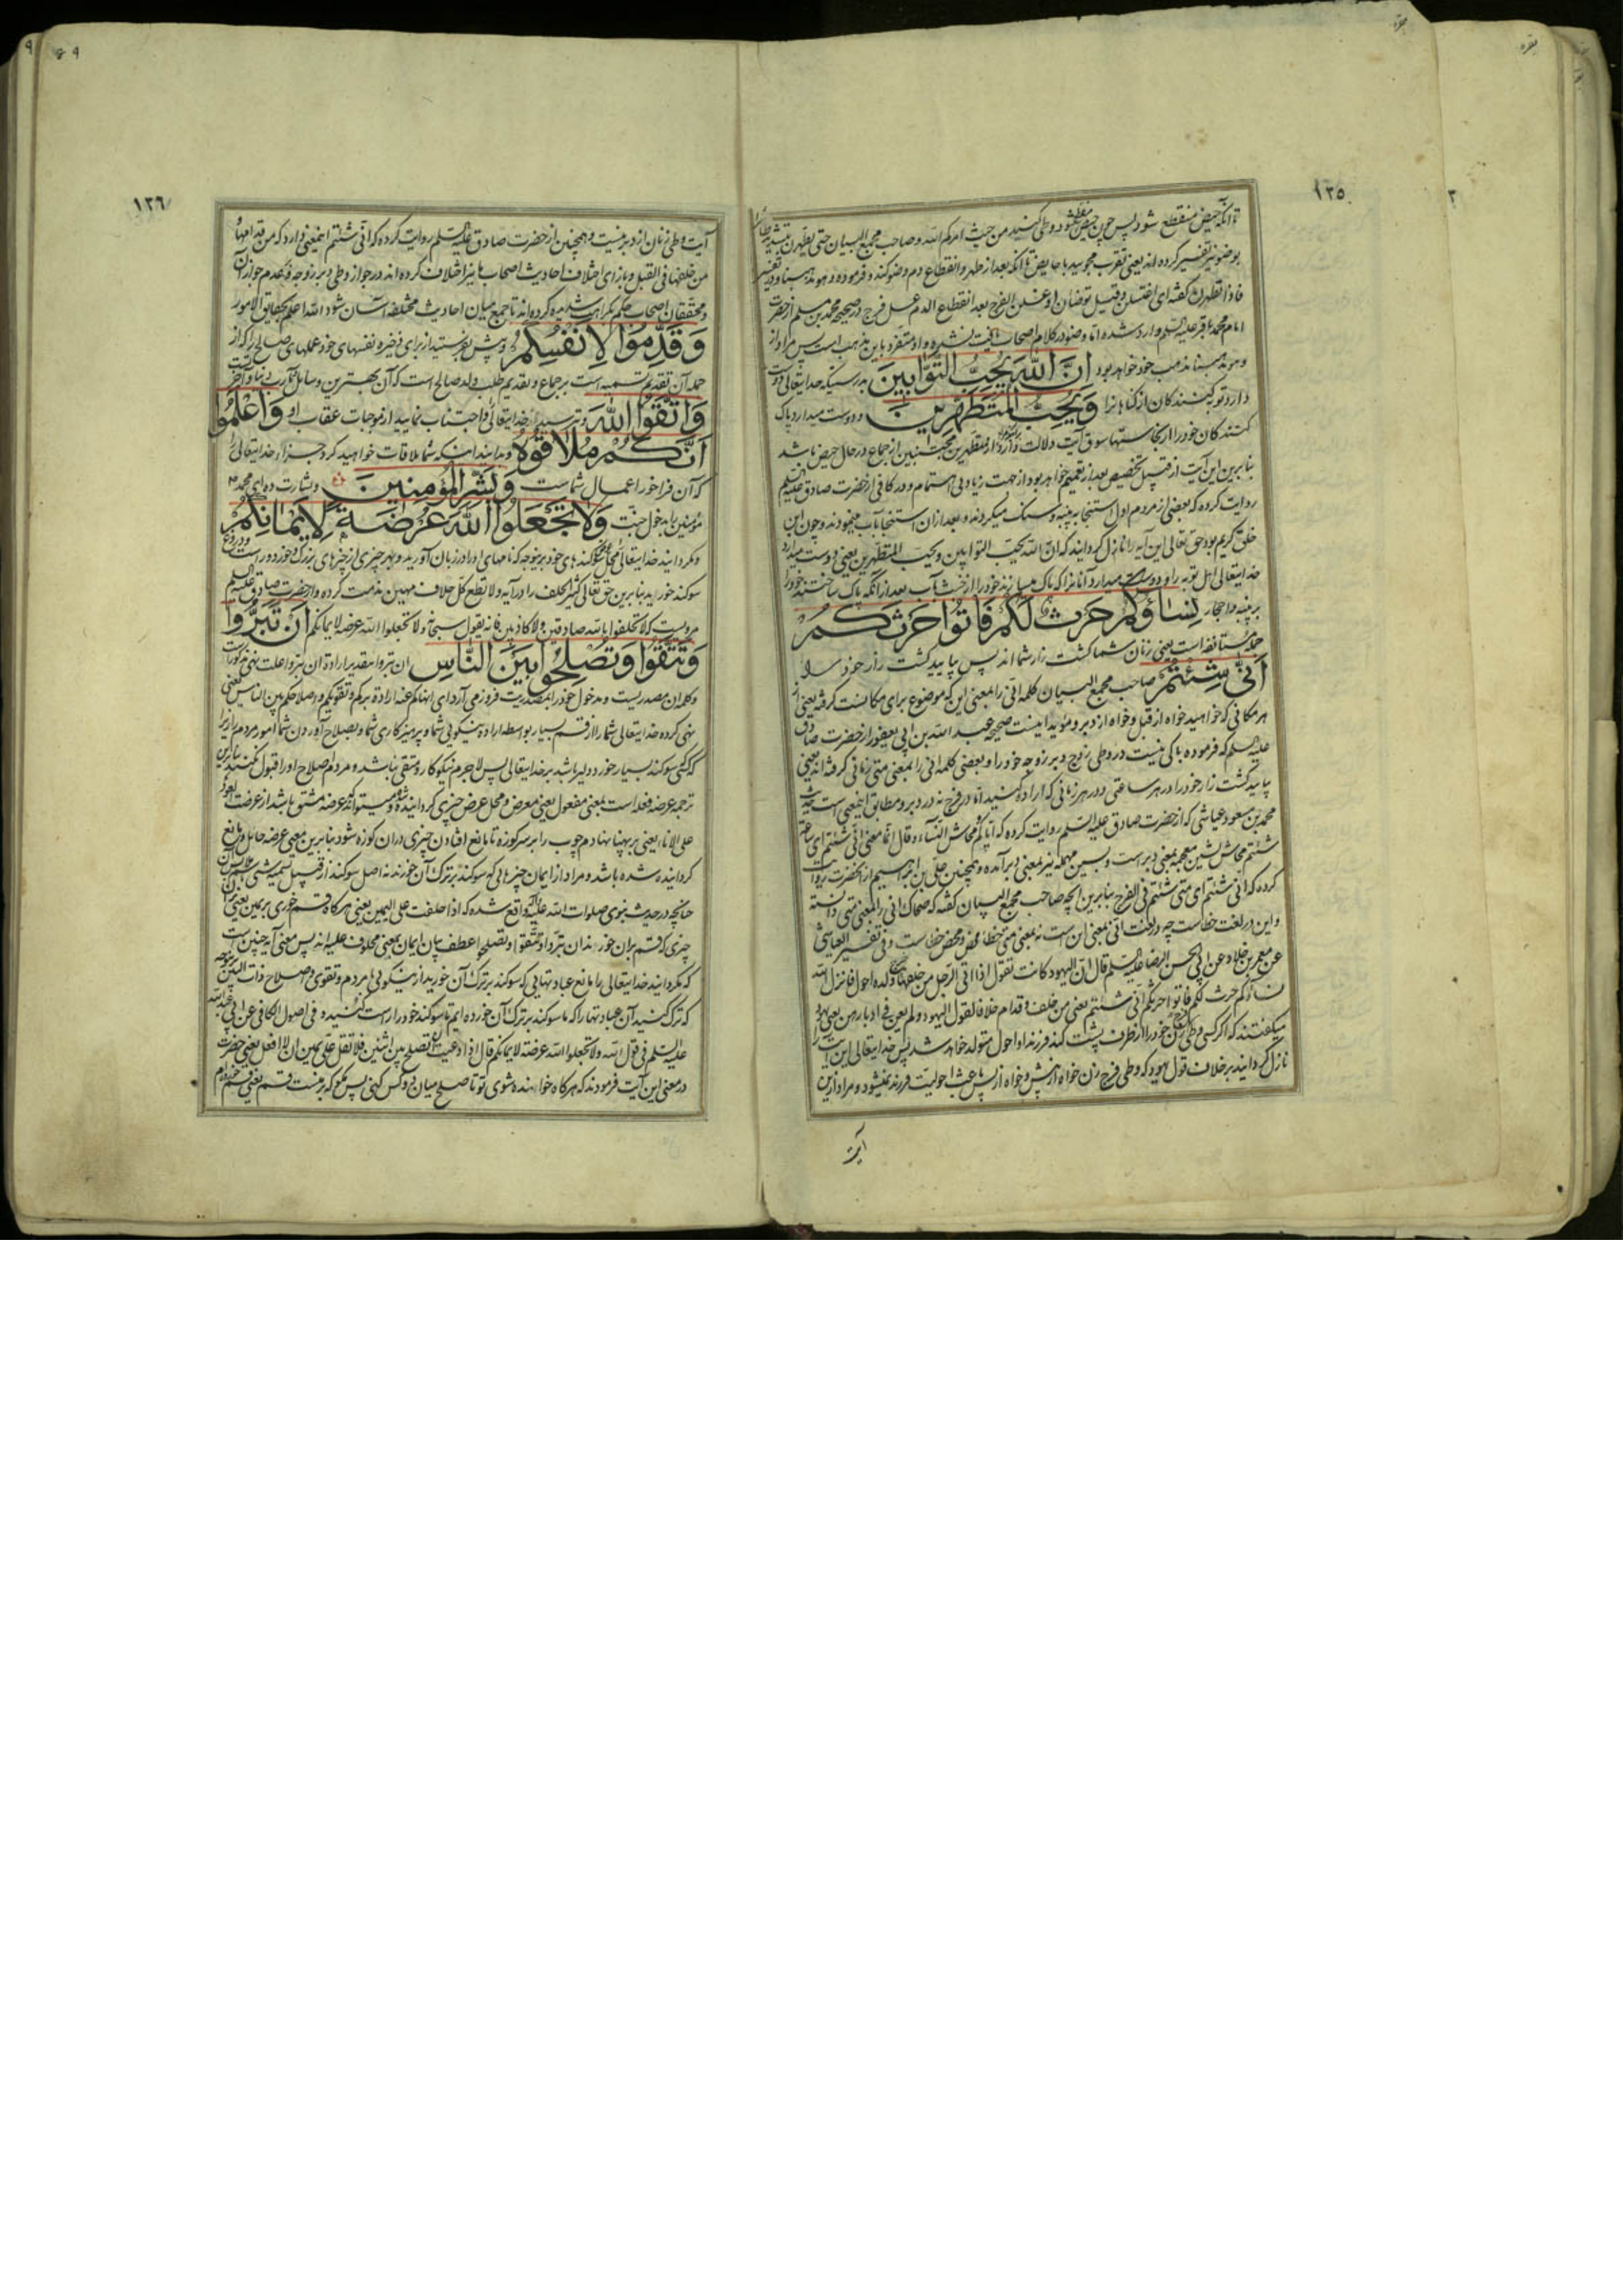 ۱۲۵
تا آنکه حیض منقطع شود پس چون حیض منقطع شود وطی کنید من حیث امرکم الله و صاحب مجمع البیان حتی یطهرن بتشدید
بوضو نیز تفسیر کرده اند یعنی تقرب مجویید با حایض تا آنکه بعد از طهر و انقطاع دم وضو کند و فرموده و هو مذهبنا و در تفسیر
فاذا تطهرن گفته ای اغتسلن و قیل توضأن او غسلن الفرج بعد انقطاع الدم غسل فرج در صحیحه محمد بن مسلم از حضرت
امام محمد باقر علیه السلم وارد شده اما وضو در کلام اصحاب یافت نشده و او متفرد باین مذهب است پس مراد از
و هو مذهبنا مذهب خود خواهد بود اِنَّ اللهَ یُحِبُّ التَّوّابینَ بدرستیکه خدایتعالی دوست
دارد توبه کنندکان از کناهانرا وَ یُحِبُّ المُتَطَهِّرینَ و دوست میدارد پاک
کنندکان خود را از نجاستها سوق آیت دلالت دارد که مراد از متطهرین مجتنبین از جماع در حال حیض باشد
بنابرین این آیت از قبیل تخصیص بعد از تعمیم خواهد بود از جهت زیادتی اهتمام و در کافی از حضرت صادق علیه السلم
روایت کرده که بعضی از مردم اول استنجا به پنبه و سنک میکردند و بعد از ان استنجا بآب مینمودند و چون این
خلق کریم بود حق تعالی این آیه را نازل کردانید که ان الله یحب التوابین و یحب المتطهرین یعنی دوست میدارد
خدایتعالی اهل توبه را و دوست میدارد آنانرا که پاک میسازند خود را از خبث بآب بعد از آنکه پاک ساختند خود را
به پنبه و احجار نِساؤُکُم حَرثٌ لَکُم فَأتُوا حَرثَکُم
جمله مستانفه است یعنی زنان شما کشت زار شما اند پس بیایید کشت زار خود را
اَنّی شِئتُم صاحب مجمع البیان کلمه انی را بمعنی این که موضوع برای مکانست کرفته یعنی از
هر مکانی که خواهید خواه از قبل و خواه از دبر و مؤید اینست صحیحه عبد الله بن ابی یعفور از حضرت صادق
علیه السلم که فرموده باکی نیست در وطی زوج دبر زوجه خود را و بعضی کلمه انی را بمعنی متی زمانی کرفته اند یعنی
بیایید کشت زار خود را در هر ساعتی و در هر زمانی که اراده کنید اما در فرج نه در دبر و مطابق اینمعنی است حدیث
محمد بن مسعود عیاشی که از حضرت صادق علیه السلم روایت کرده که ایاکم و محاش النساء و قال انما معنی انی شئتم ای ساعة
شئتم محاش بشین معجمه بمعنی دبر است و بسین مهمله نیز بمعنی دبر آمده و همچنین علی بن ابراهیم از آنحضرت روایت
کرده که انی شئتم ای متی شئتم فی الفرج بنابرین آنچه صاحب مجمع البیان کفته که ضحاک انی را بمعنی متی دانسته
و این در لغت خطاست چه در لغت انی بمعنی این است نه بمعنی متی خطاء محض و محض خطاست و فی تفسیر العیاشی
عن معمر بن خلاد عن ابی الحسن الرضا علیه السلم قال ان الیهود کانت تقول اذا اتی الرجل من خلفها خرج ولده احول فانزل الله
نساؤکم حرث لکم فاتوا حرثکم انی شئتم یعنی من خلف و قدام خلافا لقول الیهود و لم یعن فی ادبارهن یعنی یهود
میکفتند که اکر کسی وطی زن خود را از طرف پشت کند فرزند او احول متولد خواهد شد پس خدایتعالی این آیت را
نازل کردانید بر خلاف قول یهود که وطی فرج زن خواه از پیش و خواه از پس باعث احولیت فرزند نمیشود و مراد ازین
آیت
۱۲۶
آیت وطی زنان از دبر نیست و همچنین از حضرت صادق علیه السلم روایت کرده که انی شئتم اینمعنی دارد که من قدامها و
من خلفها فی القبل و بازای اختلاف احادیث اصحاب ما نیز اختلاف کرده اند در جواز وطی دبر زوجه و عدم جواز آن
و محققان اصحاب حکم بکراهت شدیده کرده اند تا جمع میان احادیث مختلفه آسان شود والله اعلم بحقایق الامور
وَ قَدِّمُوا لِاَنفُسِکُم و پیش بفرستید از برای ذخیره نفسهای خود عملهای صالح را که از
جمله آن تقدیم تسمیه است بر جماع و تقدیم طلب ولد صالح است که آن بهترین وسایل مآرب دنیا و آخرتست
وَ اتَّقُوا اللهَ و بترسید از خدایتعالی و اجتناب نمایید از موجبات عقاب او وَ اعلَمُوا
اَنَّکُم مُلاقُوهُ و بدانید اینکه شما ملاقات خواهید کرد جزاء خدایتعالی را
که آن فراخور اعمال شماست وَ بَشِّرِ المُؤمِنینَ و بشارت ده ای محمد
مؤمنین را بدخول جنت وَ لا تَجعَلُوا اللهَ عُرضَةً لِاَیمانِکُم
و مکردانید خدایتعالی را محل سوکندهای خود بر نوجه که نامهای او را در زبان آورید و بهر چیزی از چیزهای بزرک و خرد و راست و دروغ
سوکند خورید بنابرین حق تعالی کثیر الحلف را در آیه و لا تطع کل حلاف مهین مذمت کرده و از حضرت صادق علیه السلم
مرویست که لا تحلفوا بالله صادقین و لا کاذبین فانه یقول سبحانه و لا تجعلوا الله عرضة لایمانکم اَن تَبَرُّوا
وَ تَتَّقُوا وَ تُصلِحُوا بَینَ النّاسِ ان تبروا بتقدیر ارادة ان تبروا علت نهی مذکورست
و کلمه ان مصدریست و مدخول خود را بمصدریت فرو ز می آرد ای انهاکم عنه ارادة برکم و تقویکم و اصلاحکم بین الناس یعنی
نهی کرده خدایتعالی شما را از قسم بسیار بواسطه اراده نیکویی شما و پرهیزکاری شما و بصلاح آوردن شما امور مردم را زیرا
که کسی سوکند بسیار خورد دلیر باشد بر خدایتعالی پس لاجرم نیکوکار و متقی نباشد و مردم اصلاح او را قبول نکنند بنابرین
ترجمه عرضه فعله است بمعنی مفعول یعنی معرض و محل عرض چیزی کردانیده شده و میتواند که عرضه مشتق باشد از عرضت العود
علی الاناء یعنی بر پهنا نهادم چوب را بر سر کوزه تا مانع افتادن چیزی در ان کوزه شود بنابرین معنی عرضه حایل و مانع
کردانیده شده باشد و مراد از ایمان چیزهایی که سوکند بر ترک آن خورند نه اصل سوکند از قبیل تسمیه شیء
چنانچه در حدیث نبوی صلوات الله علیه و آله واقع شده که اذا حلفت علی الیمین یعنی هرکاه قسم خوری بر یمین یعنی
چیزی که قسم بران خورند ان تبروا و تتقوا و تصلحوا عطف بیان ایمان بمعنی محلوف علیه اند پس معنی آیه چنین است
که مکردانید خدایتعالی را مانع عبادتهایی که سوکند بر ترک آن خورید از نیکویی با مردم و تقوی و اصلاح ذات البین
که ترک کنید آن عبادتها را که ما سوکند بر ترک آن خورده ایم تا سوکند خود را راست کنید و فی اصول الکافی عن ابی عبد الله
علیه السلم فی قول الله و لا تجعلوا الله عرضة لایمانکم قال اذا دعیت لتصلح بین اثنین فلا تقل علی یمین ان لا افعل یعنی حضرت
در معنی این آیت فرمودند که هرکاه خوانده شوی تو تا صلح میان دو کس کنی پس مکو که بر منست قسم یعنی قسم خورده ام